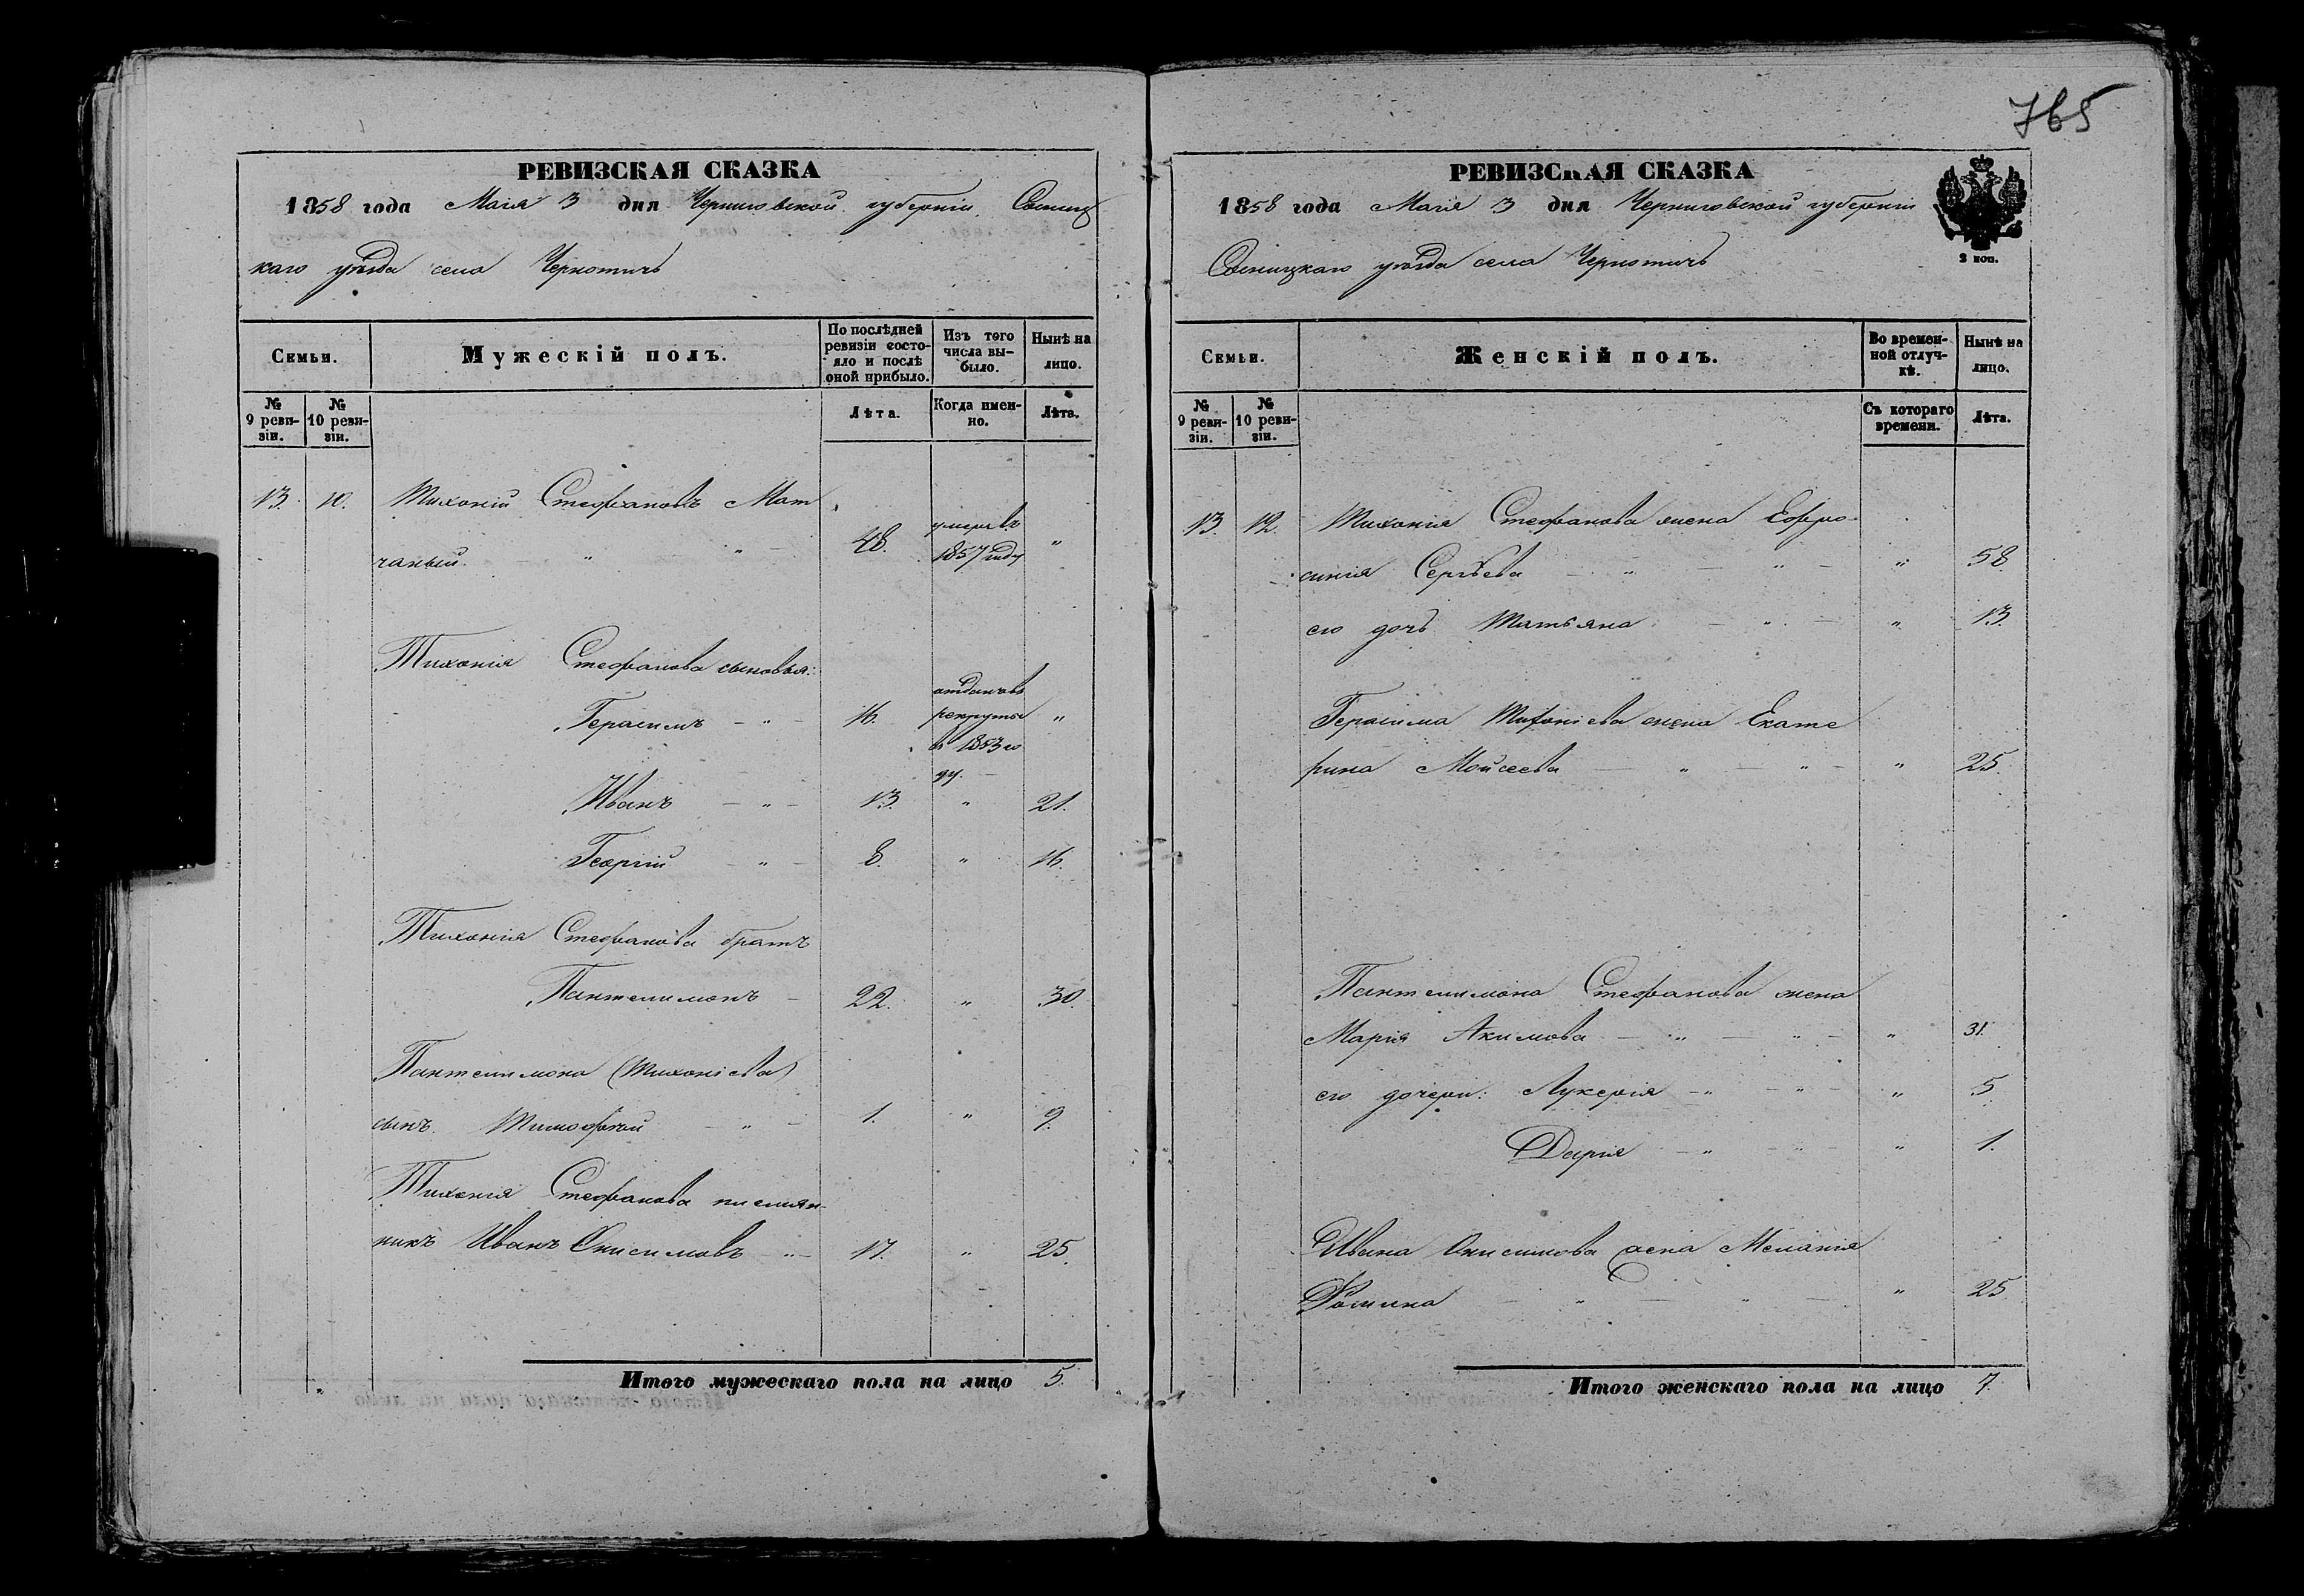 765
РЕВИЗСКАЯ СКАЗКА
1858 года Маія 3 дня Черниговской губерніи, Сосниц
каго уѣзда села Чернотичь
Семьи.
Мужескій полъ.
По послѣдней ревизіи состояло и послѣ оной прибыло.
Изъ того числа выбыло.
Нынѣ на лицо.
№ 9 ревизіи.
№ 10 ревизіи.
Лѣта.
Когда именно.
Лѣта.
13. 10. Тихоній Стефановъ Мат
чаный " " 48. умеръ въ 1857 году "
Тихонія Стефанова сыновья:
Герасимъ - " - 16. отданъ въ рекруты в 1853 го ду. - "
Иванъ - " - 13. " 21.
Георгій - " - 8. " 16.
Тихонія Стефанова братъ
Пантелимонъ - 22. " 30.
Пантелимона (Тихоніева)
сынъ Тимофѣй - " - 1. " 9.
Тихонія Стефанова племян-
никъ Иванъ Онисимовъ " - 17. " 25.
Итого мужескаго пола на лицо 5.
РЕВИЗСКАЯ СКАЗКА
1858 года Маія 3 дня Черниговской губерніи
Сосницкаго уѣзда села Чернотичь
2 коп.
Семьи.
Женскій полъ.
Во временной отлучкѣ.
Нынѣ на лицо.
№ 9 ревизіи.
№ 10 ревизіи.
Съ котораго времени.
Лѣта.
13. 12. Тихонія Стефанова жена Евфро-
синія Сергѣева - " - " - " 58.
его дочь Татьяна - " - " 13.
Герасима Тихоніева жена Екате
рина Мойсеева - " - " - " 25.
Пантелимона Стефанова жена
Марія Акимова - " - " - " 31.
его дочери: Лукерія - " - " - " 5.
Дарія - " - " - " 1.
Ивана Онисимова жена Меланія
Фомина - " - " - " 25.
Итого женскаго пола на лицо 7.